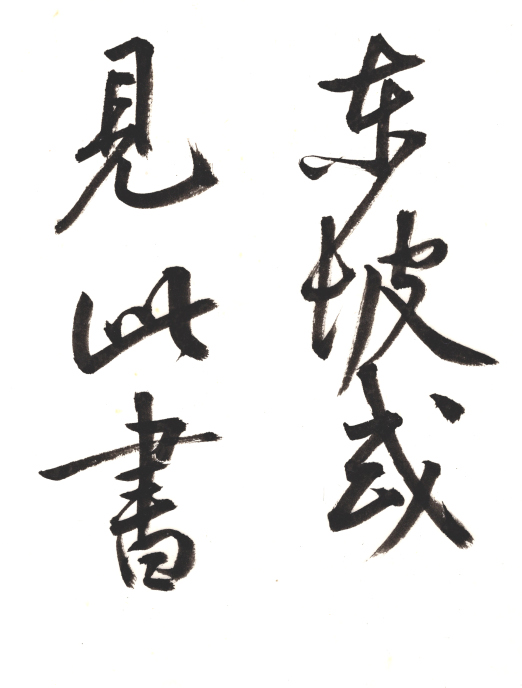 东坡或
見此書